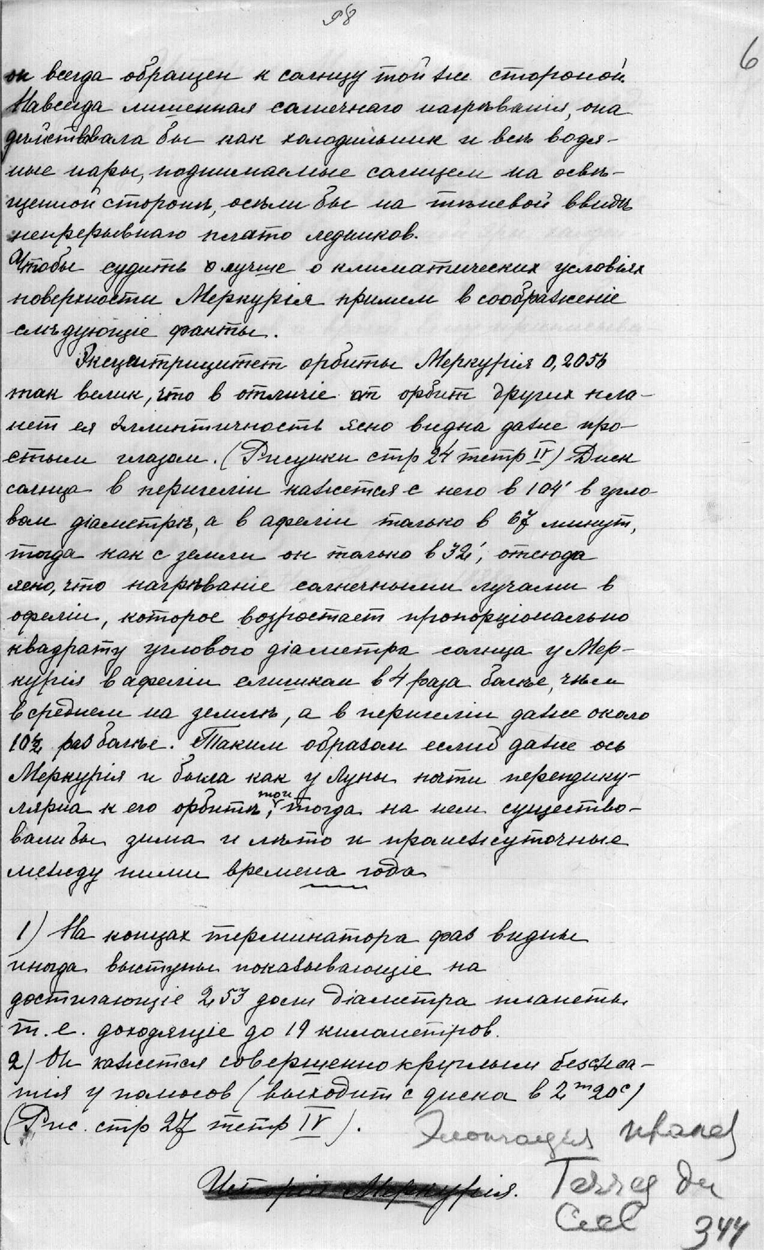 98
6
он всегда обращен к солнцу той же стороной
Навсегда лишенная солнечнаго нагрѣванія, она
дѣйствовала бы как холодильник и всѣ водя-
ные пары, поднимаемые солнцем на освѣ-
щенной сторонѣ, осѣли бы на тѣневой ввидѣ
непрерывнаго плато ледников.
Чтобы судить лучше о климатических условіях
поверхности Меркурія примем в соображеніе
слѣдующіе факты.
Эксцентрицитет орбиты Меркурія 0,2056
так велик, что в отличіе от орбит других пла-
нет ея эллиптичность ясно видна даже про-
стым глазом. (Рисунки стр 24 тетр IV) Диск
солнца в перигеліи кажется с него в 104' в угло-
вом діаметрѣ, а в афеліи только в 67 минут,
тогда как с земли он только в 32', отсюда
ясно, что нагрѣваніе солнечными лучами в
афеліи, которое возростает пропорціонально
квадрату углового діаметра солнца у Мер-
курія в афеліи слишком в 4 раза болѣе, чѣм
в среднем на землѣ, а в перигеліи даже около
10½ раз болѣе. Таким образом еслиб даже ось
Меркурія и была как у Луны почти перпендику-
лярна к его орбитѣ, тогда на нем существо-
вали бы зима и лѣто и промежуточные
между ними времена года
1) На концах терминатора фаз видны
иногда выступы показывающіе на
достигающіе 253 доли діаметра планеты
т. е. доходящіе до 19 километров.
2) Он кажется совершенно круглым без сжа-
тія у полюсов (выходит с диска в 2m 20c)
(Рис. стр 27 тетр IV).
Элонгация
Исторія Меркурія.
Terres du
Ciel
344